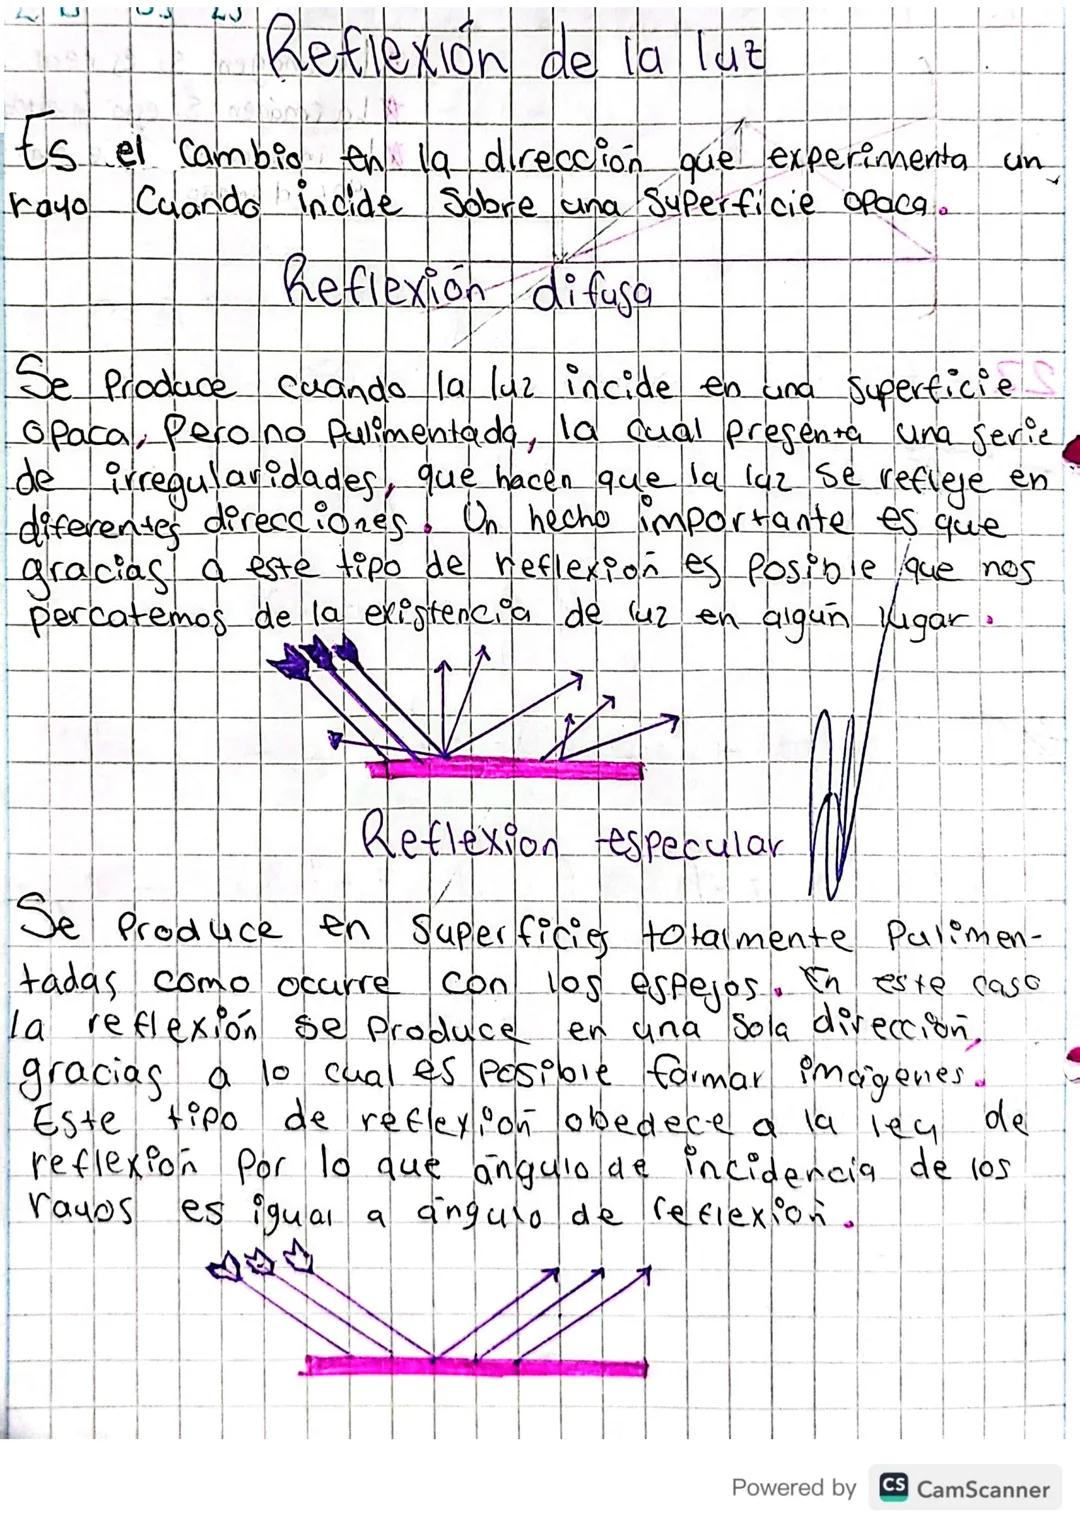 Reflexión de la luz
Es el cambio en la dirección que experimenta un
rayo Cuando incide Sobre una Superficie opaca.
Reflexión difusa
Se Produce cuando la luz incide en una superficie
opaca, Pero no Pulimentada, la cual presenta una serie
de irregularidades, que hacen que la luz se refleje en
diferentes direcciones. Un hecho importante es que
gracias a este tipo de reflexión es Posible que nos
percatemos de la existencia de luz en algún lugar.
Reflexion especular
Se Produce en Superficies totalmente Pulimen-
tadas como ocurre con los espejos. En este caso
la reflexión se Produce en una Sola dirección,
gracias a lo cual es Posible formar imágenes.
Este tipo de reflexión obedece a la ley de
reflexión Por lo que ángulo de incidencia de los
rayos es igual a ángulo de reflexión.
Powered by CS CamScanner